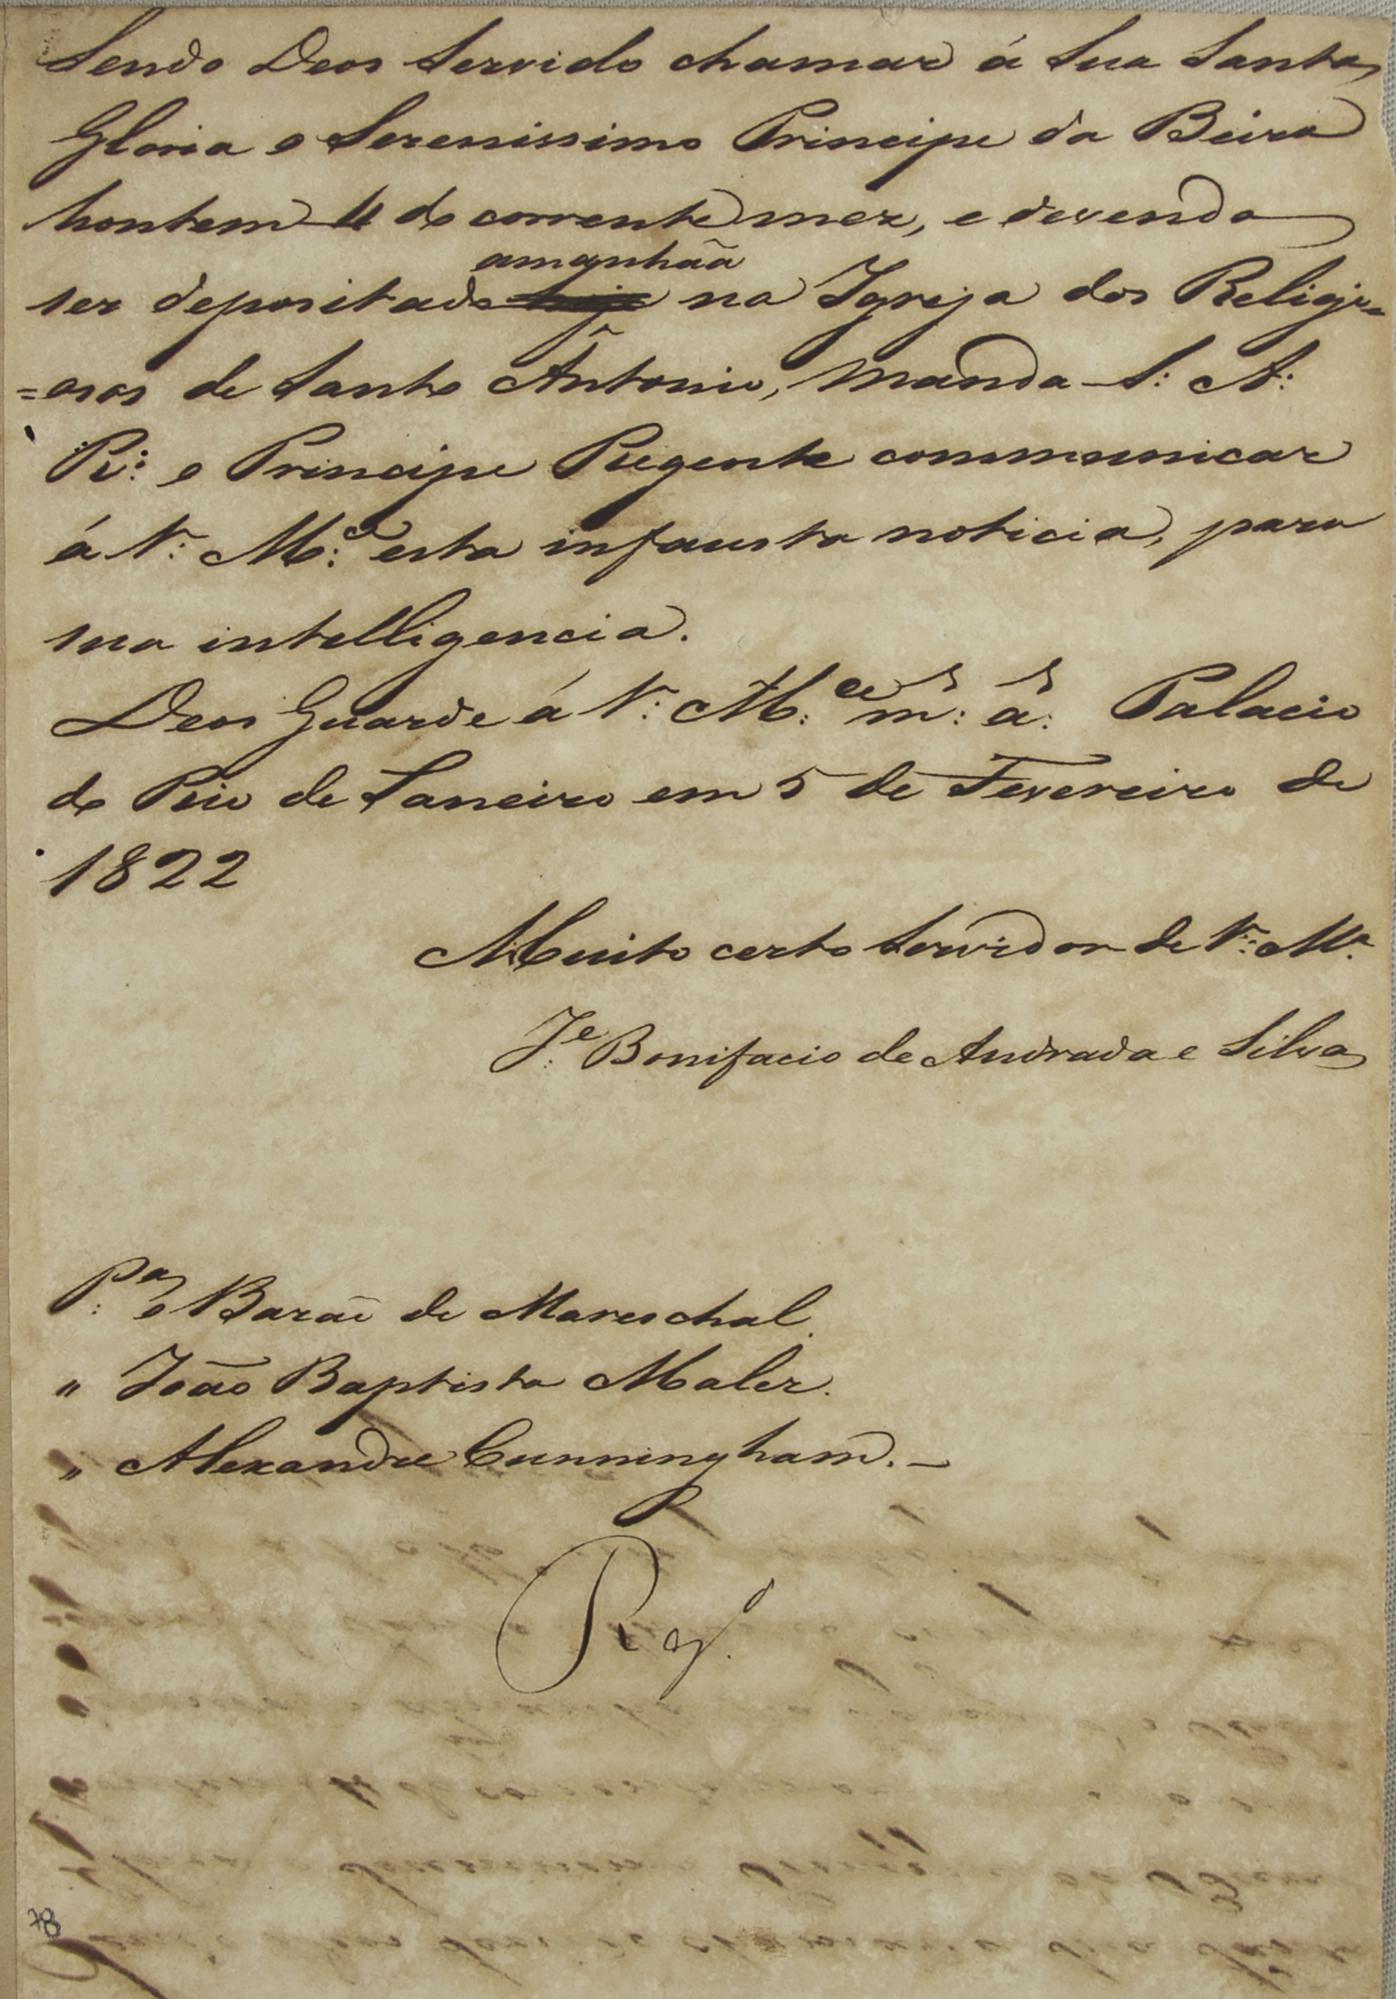 Sendo Deos Servido chamar á Sua Santa
Gloria o Serenissimo Principe da Beira
hontem 4 do corrente mez, e devendo
amanhãa
ser depositado hoje na Igreja dos Religi=
=osos de Santo Antonio, Manda S: A:
R: o Principe Regente communicar
á V: M:ce esta infausta noticia, para
sua intelligencia.
Deos Guarde á V: M:ce m:s a:s Palacio
do Rio de Janeiro em 5 de Fevereiro de
1822
Muito certo Servidor de V: M.ce
J:e Bonifacio de Andrada e Silva
P:a o Barão de Mareschal.
" João Baptista Maler.
" Alexandre Cunningham. –
Reg.o